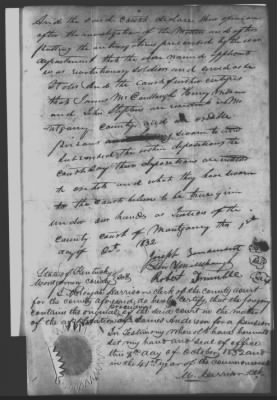 And the said court declare their opinion
after the investigation of the matter and after
putting the interrogatories prescribed by the war
department that the above named applicant
was a revolutionary soldier and served as he
states And the court further certifies
that James McCullough Henry
and John Stephens are resident in Mo
ntgomery county and credible
persons sworn to and
subscribed the within depositions to
court say their depositions are entitled
to credit and what they have sworn
to the court believe to be true given
under our hands as Justices of the
county court of Montgomery this 1st
day of Oct 1832
Joseph
Ben
Robert Trimble
State of Kentucky
Montgomery county Sct
I Morgan Garrison clerk of the county court
for the county aforesaid do hereby certify that the foregoing
contains the original proceedings of the said court in the matter
of the application of James Anderson for a pension
In Testimony whereof I have hereunto
set my hand and seal of office
this 9th day of October 1832 and
in the 41st year of the commonwealth
M. Garrison Clk